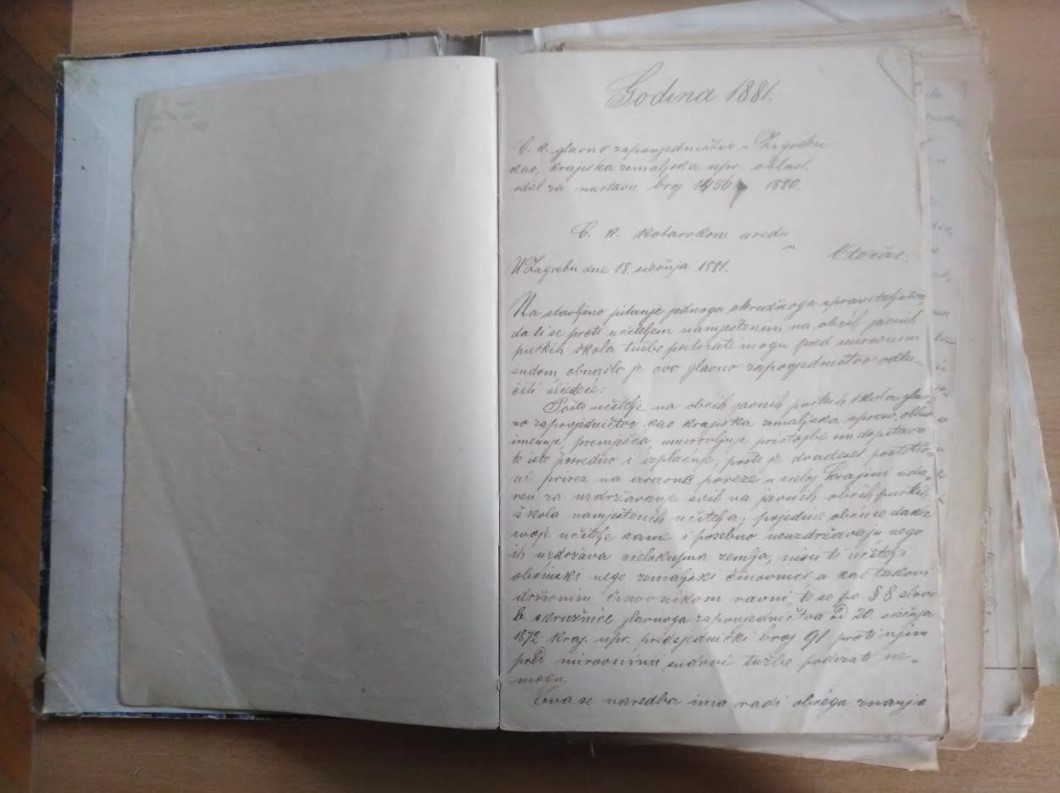 Godina 1881.
C. k. glavno zapovjedničtvo u Zagrebu
kao krajiška zemaljska upr. oblast.
odël za nastavu broj 1456 1880.
C. k. kotarskom uredu
u
Otočac.
U Zagrebu dne 18. siečnja 1881.
Na stavljeno pitanje jednoga okružnoga upraviteljstva
da li se proti učiteljem namještenim na obćih javnih
pučkih škola tužbe podizati mogu pred mirovnim
sudom obnašlo je ovo glavno zapovjedničtvo odlu-
čiti sliedeće:
Pošto učitelje na obćih javnih pučkih škola glav-
no zapovjedničtvo kao krajiška zemaljska uprav. oblast
imenuje, premješća, umirovljuje pristojbe im dopitava
te iste posredno i izplaćuje, pošto je dvadeset postotni
prirez na izravne poreze u cieloj Krajini uda-
ren za uzdržavanje svih na javnih obćih pučkih
škola namještenih učitelja; pojedine obćine dakle
svoje učitelje same i posebno neuzdržavaju nego
ih uzdržava cielokupna zemlja, nisu ti učitelji
obćinski nego zemaljski činovnici a kao takovi
državnim činovnikom ravni, te se po § 8 slovo
b okružnice glavnoga zapovjedničtva od 20. siečnja
1872 kraj. upr. predsjednički broj 91 proti njim
pred mirovnimi sudovi tužbe podizati ne-
mogu.
Ova se naredba ima radi obćega znanja